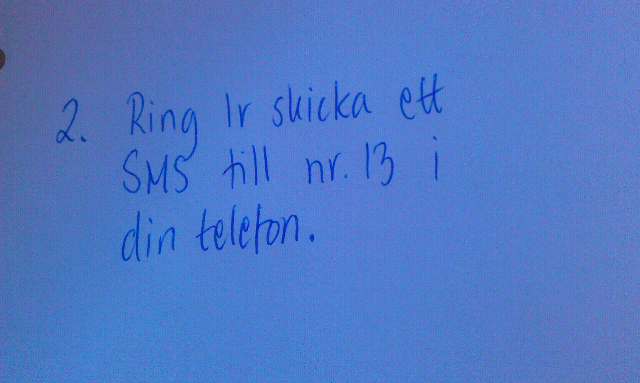 2. Ring 1r skicka ett
SMS till nr. 13 i
din telefon.